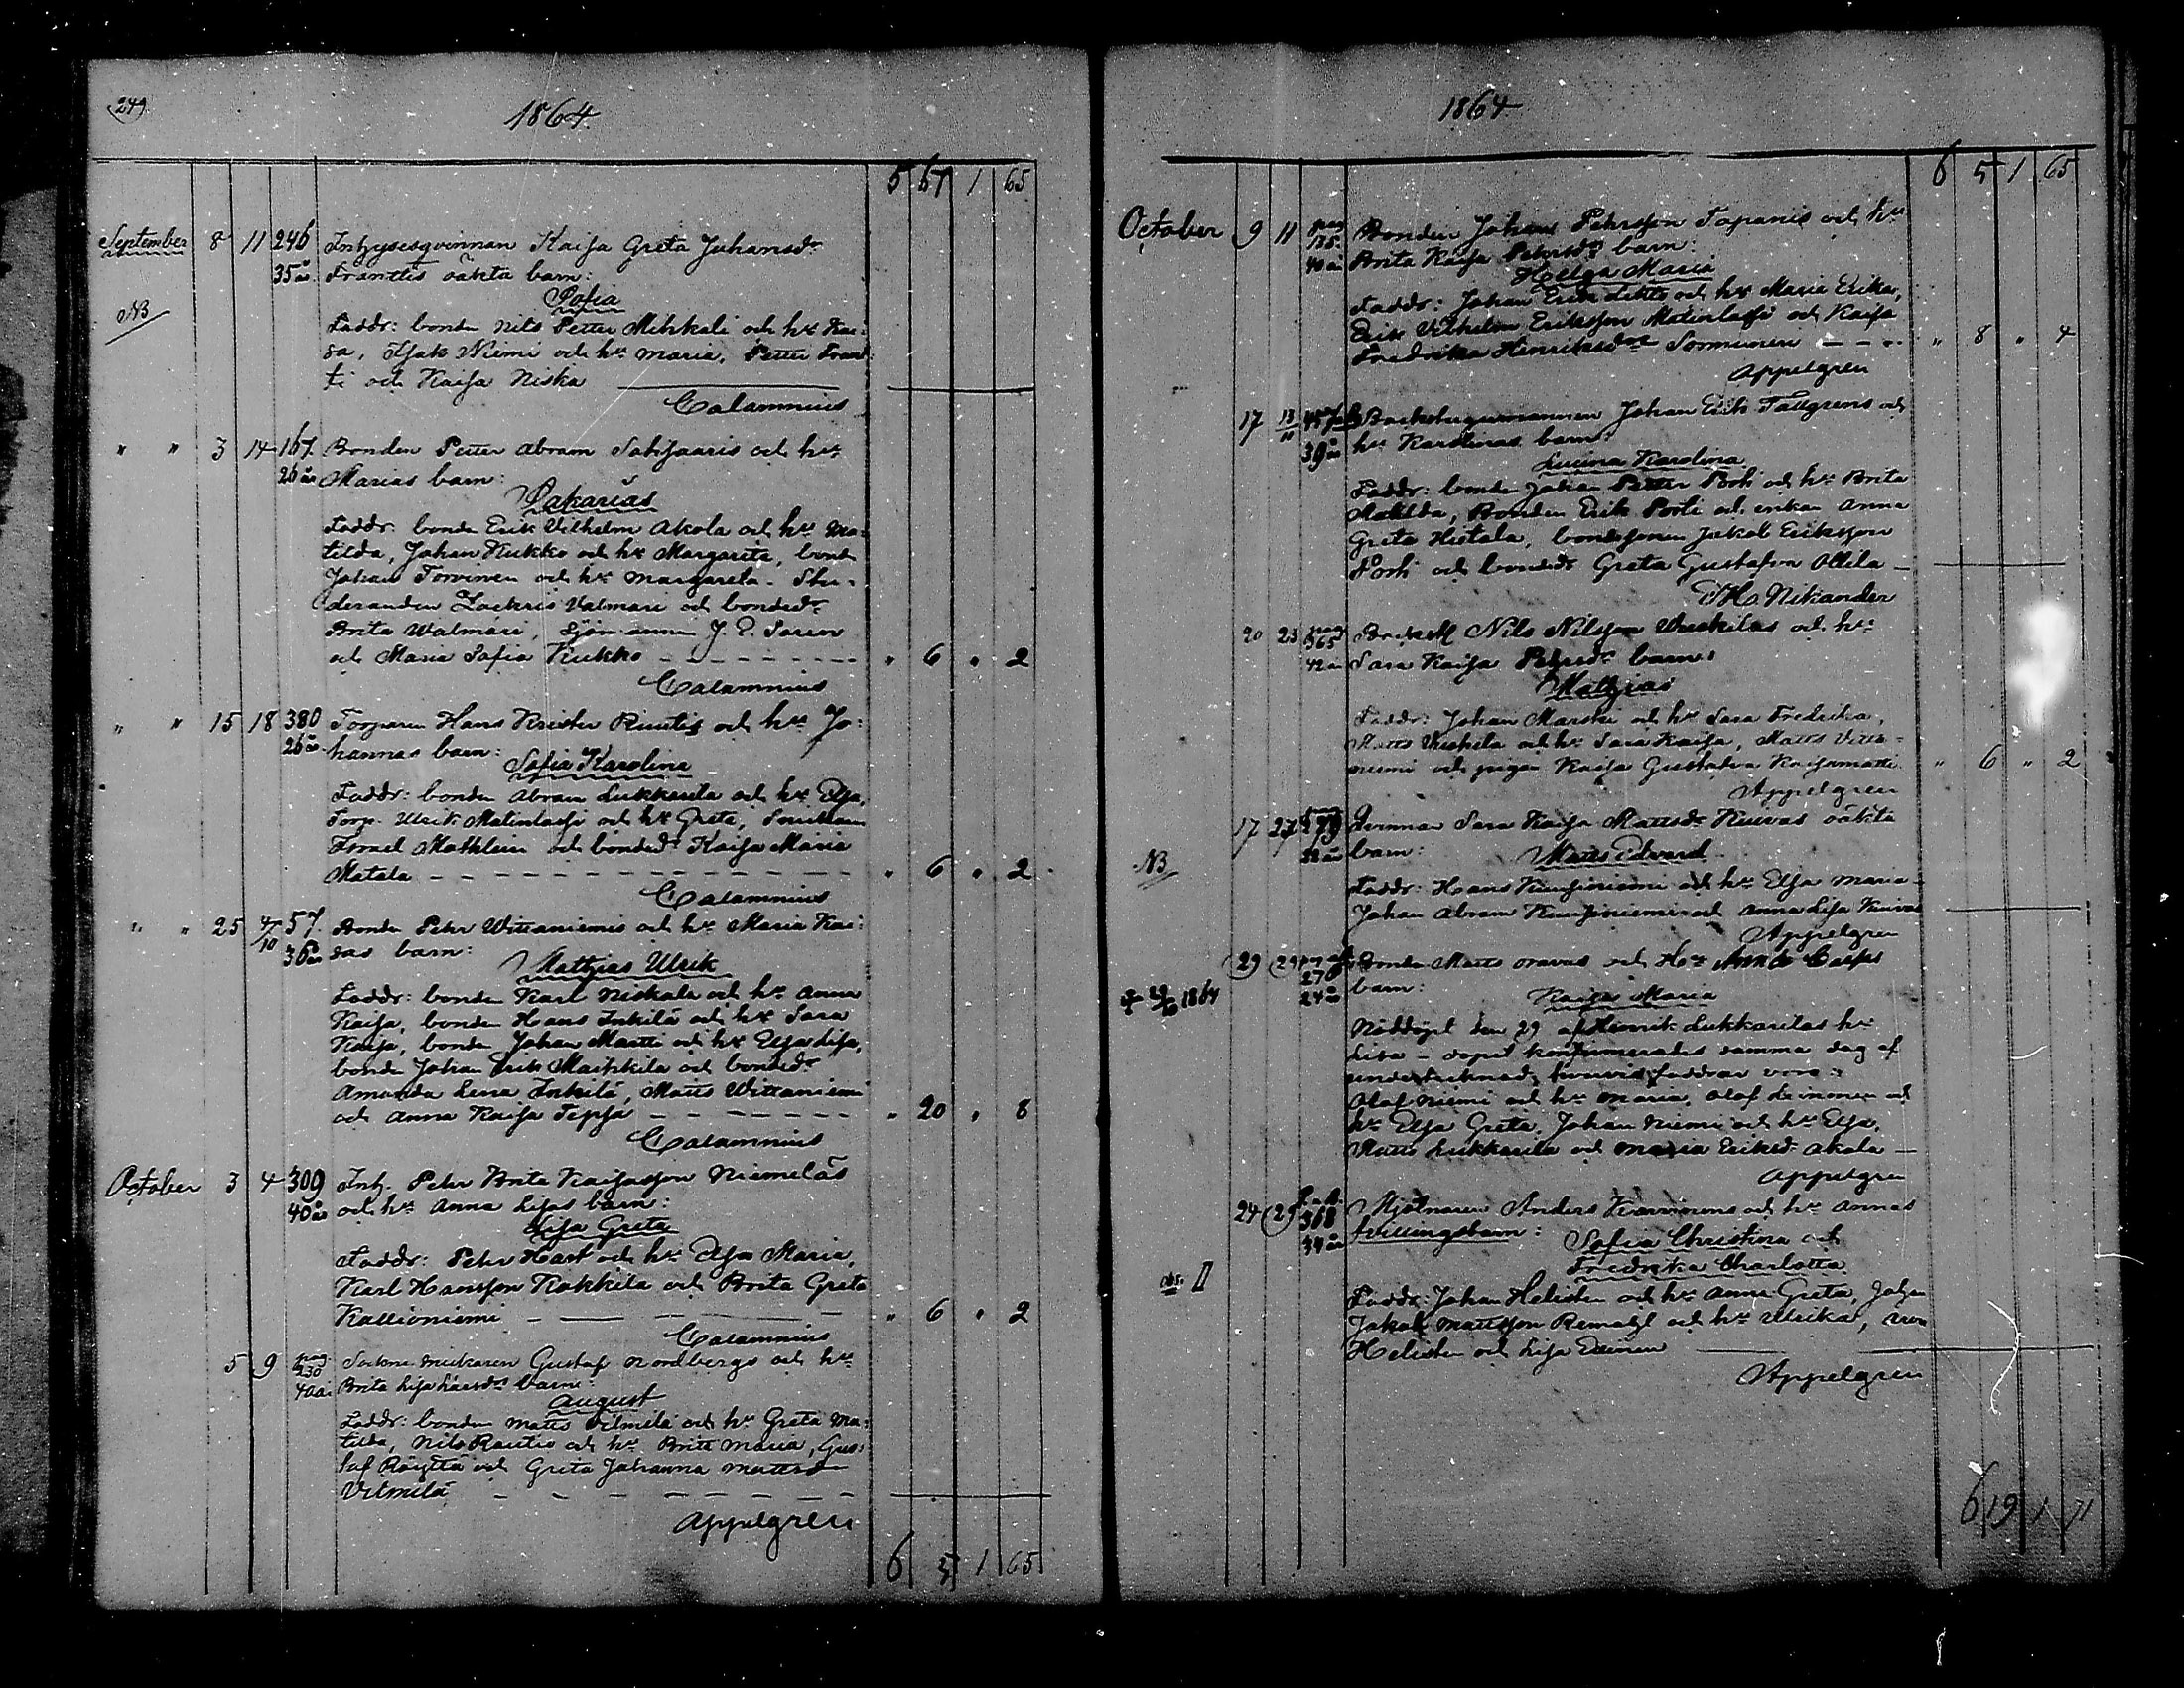 249.
1864.
5 67 1 65
September 8 11 246 Inhysesqvinnan Kaisa Greta Johansdr
35 år. Franttis oäkta barn:
Sofia
NB
Faddr: bonden Nils Petter Mihkali och hu Kai:
sa, Isak Niemi och hu Maria, Petter Frant:
ti och Kaisa Niska
Calamnius
" " 3 14 167. Bonden Petter Abram Sohjaaris och hu
26 år Marias barn:
Zakarias
Faddr: bonden Erik Vilhelm Akola och hu Ma:
tilda, Johan Kukko och hu Margareta, bonden
Johan Torvinen och hu Margareta - Stu:
deranden Zachris Valmari och bondedr
Brita Walmari, Sjömannen J. E.
och Maria Sofia Kukko " 6 " 2
Calamnius
" " 15 18 380 Torparen Hans Krister Ruutis och hu Jo:
26 år. hannas barn:
Sofia Karolina
Faddr: bonden Abram Lukkarila och hu Elsa,
Torp. Ulrik Matinlassi och hu Greta,
Israel Mathlein och bondedr Kaisa Maria
Matala " 6 " 2
Calamnius
" " 25 4/10 57. Bonden Pehr Wittaniemis och hu Maria Kai:
36 år sas barn:
Mathias Ulrik
Faddr: bonden Karl Niskala och hu Anna
Kaisa, bonden Hans Inkilä och hu Sara
Kaisa, bonden Johan Martti och hu Elsa Lisa,
bonden Johan Erik Maihkila och bondedr
Amanda Lena Inkilä, Matts Wittaniemi
och Anna Kaisa Tepsa " 20 " 8
Calamnius
October 3 4 309 Inh. Pehr Brita Kaisasson Niemeläs
40 år och hu Anna Lisas barn:
Lisa Greta
Faddr: Pehr Hast och hu Elsa Maria,
Karl Hansson Kokkila och Brita Greta
Kallioniemi " 6 " 2
Calamnius
5 9 pag. 230 Sockne Gustaf Nordbergs och hu
40 år Brita Lisa Larsdr barn:
August
Faddr: bonden Matts Vilmilä och hu Greta Ma:
tilda, Nils Rautio och hu Britt Maria, Gus:
taf Röyttä och Greta Johanna Mattsdr
Vilmilä
Appelgren
6 5 1 65
1864
6 5 1 65
October 9 11 pag 135. Bonden Johan Pehrsson Tapanis och hu
40 år Brita Kaisa Pehrsdr barn:
Helga Maria
Faddr: Johan Erik Lehto och hu Maria Erika,
Erik Vilhelm Eriksson Matinlassi och Kaisa
Fredrika Henriksdr Sormunen " 8 " 4
Appelgren
17 13/11 457 Backstugumannen Johan Erik Tallgrens och
39 år hu Karolinas barn:
Lucina Karolina
Faddr: bonden Johan Petter Porti och hu Brita
Matilda, Bonden Erik Porti och enkan Anna
Greta Hietala, bondsonen Jakob Eriksson
Porti och bondedr Greta Gustafva Ollila
Nikander
20 23 pag 365 Nils Nilsson Uuskilas och hu
42 år Sara Kaisa Pehrsdr barn:
Mathias
Faddr: Johan Marski och hu Sara Fredrika,
Matts Uuskila och hu Sara Kaisa, Matts Vitta:
niemi och pigan Kaisa Gustafva Kaisamatti. " 6 " 2
Appelgren
17 27 Qvinnan Sara Kaisa Mattsdr Kuivas oäkta
32 år barn: Matts Edvard
NB
Faddr: Hans Kunsiniemi och hu Elsa Maria
Johan Abram Kunsiniemi och Anna Lisa Kuivas
Appelgren
29 29 276 Bonden Matts Oravas och Hu Anna
24 år barn: Kaisa Maria
29/10 1864
Nöddöpt den 29 af Henrik Lukkarilas hu
Lisa - dopet konfirmerades samma dag af
undertecknad, hvarvid faddrar voro:
Olof Niemi och hu Maria, Olof Leinonen och
hu Elsa Greta, Johan Niemi och hu Elsa,
Matts Lukkarila och Maria Eriksdr Akola
Appelgren
24 29 368 Mjölnaren Anders Karvonens och hu Annas
34 år tvillingsbarn: Sofia Christina och
Fredrika Charlotta
obs. II
Faddr: Johan Helisten och hu Anna Greta,
Jakob Mattsson Remahl och hu Ulrika,
Helisten och Lisa
Appelgren
6 19 1 71